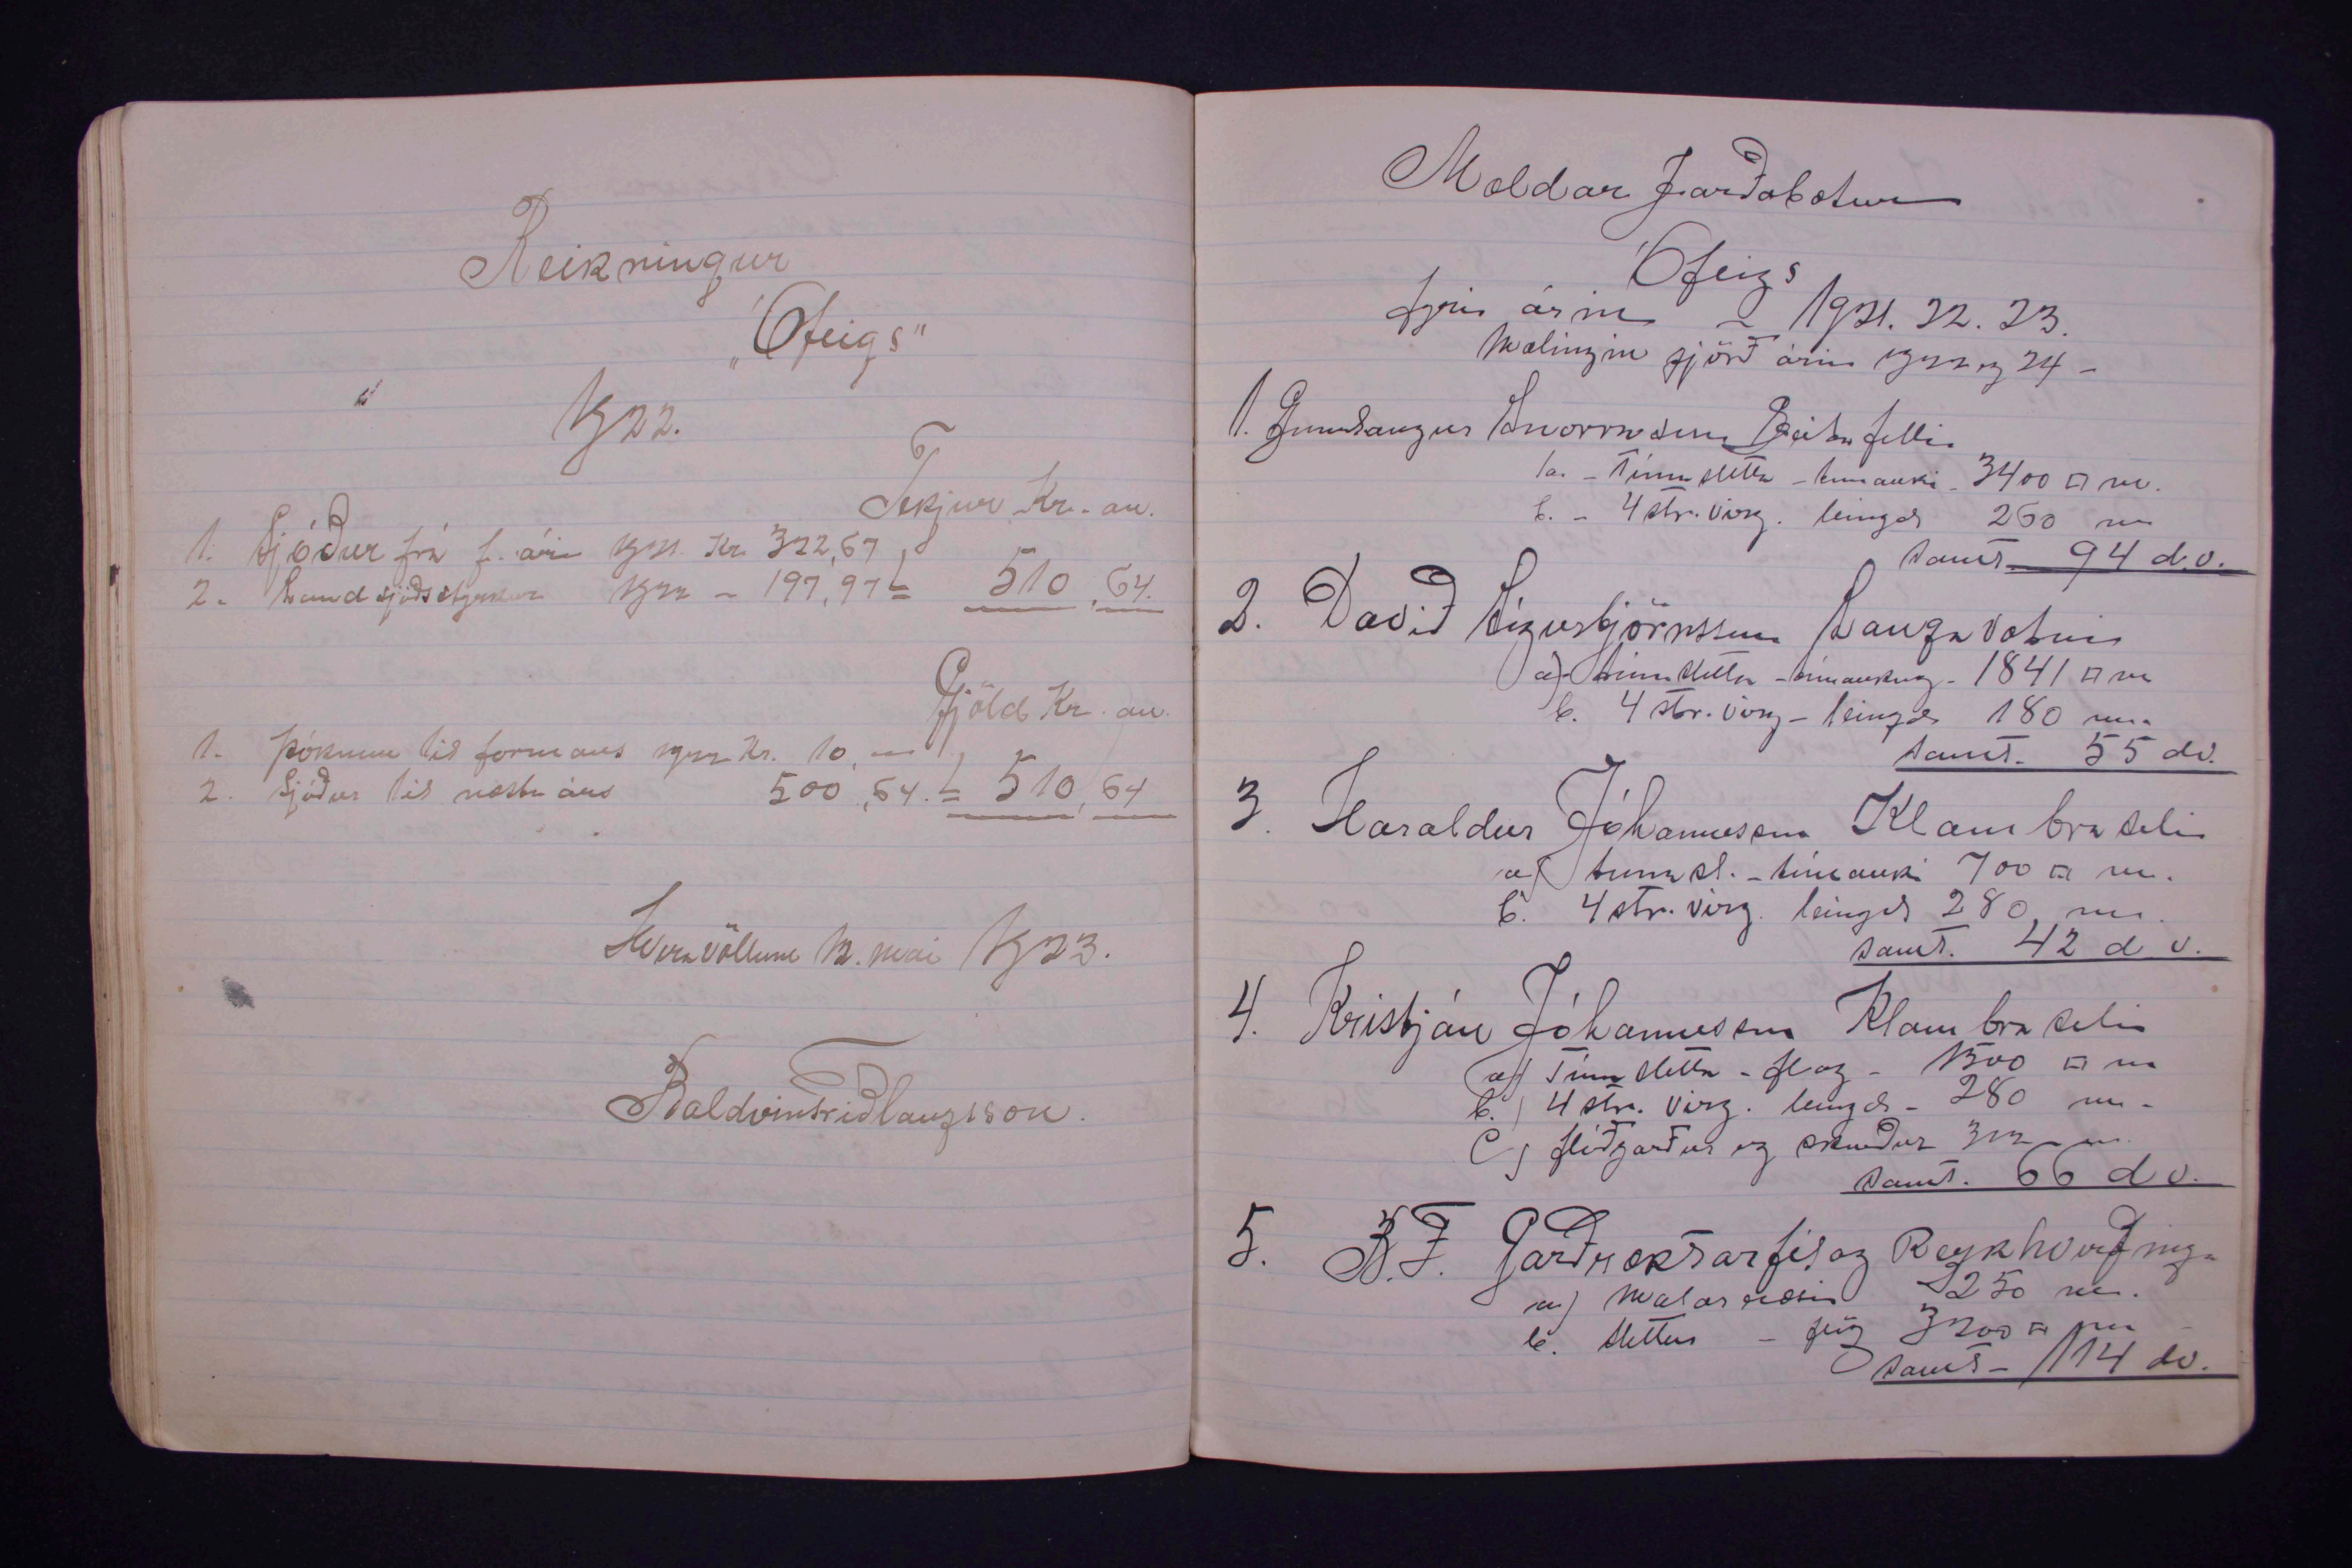 Reikningur
„Ófeigs"
1922.
Tekjur Kr. au.
1. Sjóður frá f. ári 1921. Kr. 322,67
2. Landsjóðsstyrkur 1922 - 197,97 = 510,64.
Gjöld Kr. au.
1. Þóknun til formans 1922 Kr. 10,
2. Sjóður til næsta árs 500,64. = 510,64
Hveravöllum 12. mai 1923.
Baldvin Friðlaugsson.
Mældar Jarðabætur
Ófeigs
fyrir árin - 1921. 22. 23.
Mælingin gjörð árin 1922 og 24 -
1. Gunnlaugur Snorrason Geitafelli
a. - Túnaslétta - túnauki - 3400 □ m.
b. - 4 str. virg. leingd 260 m
samt. 94 d.v.
2. Davið Sigurbjörnsson Langavatni
a) túnaslétta - túnaukng - 1841 □ m
b. 4 str. virg - leingd 180 m.
samt. 55 dv.
3. Haraldur Jóhannesson Klambraseli
a) túnasl. - túnauki 700 □ m.
b. 4 str. virg. leingd 280 m.
samt. 42 d v.
4. Kristján Jóhannesson Klambraseli
a) Túnaslétta - flag - 1500 □ m
b.) 4 str. virg. leingd - 280 m -
c) flóðgarður og skurður 312 m.
samt. 66 d v.
5. B.F. Garðræktarfélag Reykhverfinga
a) Malar 250 m.
b. sléttur - 3200 □ m
samt - 114 dv.